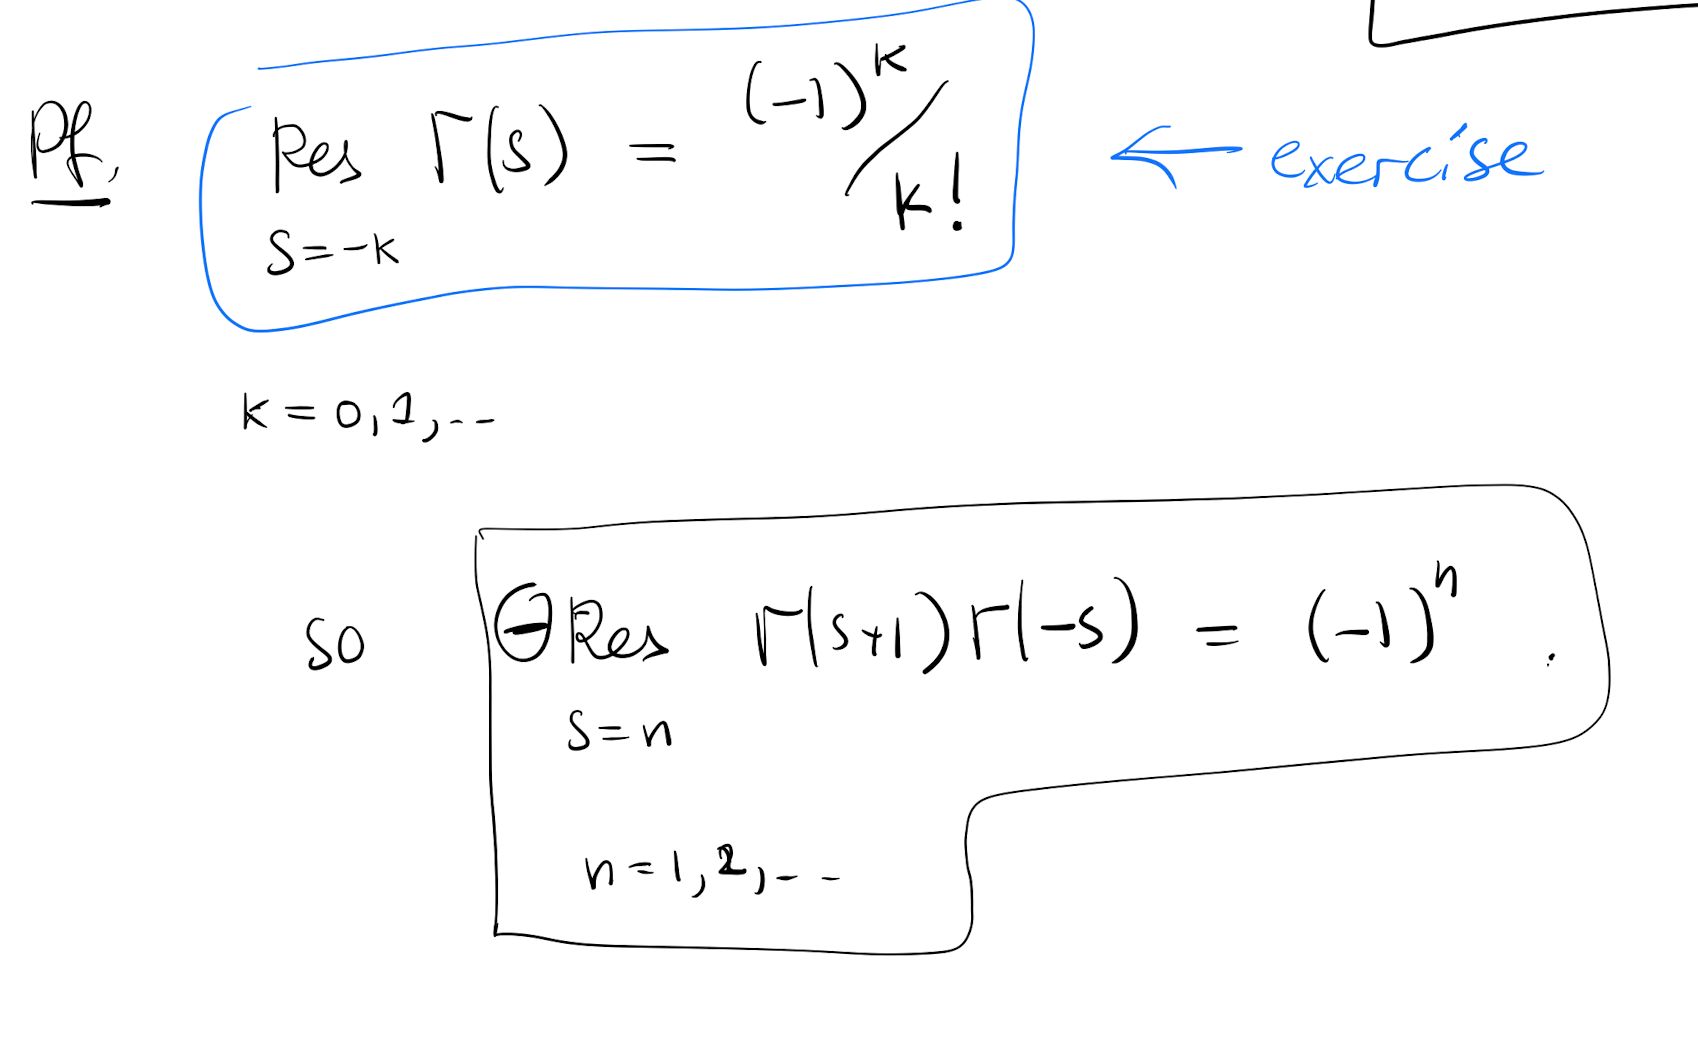 Pf. Res Γ(s) = (-1)^k / k! ← exercise
s=-k
k = 0, 1, ..
so ⊖ Res Γ(s+1) Γ(-s) = (-1)^n .
s=n
n = 1, 2, ..